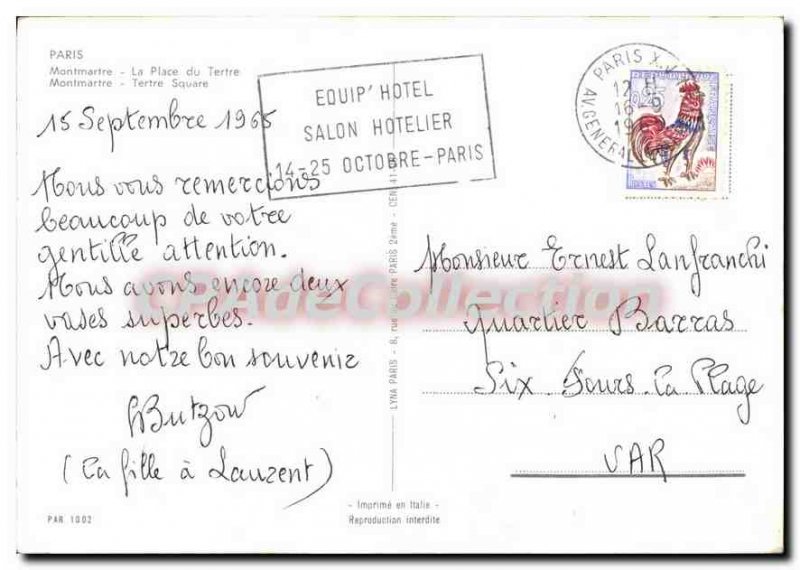 PARIS
Montmartre - La Place du Tertre
Montmartre - Tertre Square
15 Septembre 1965
EQUIP' HOTEL
SALON HOTELIER
14-25 OCTOBRE-PARIS
PARIS X
12 H
16-9
19
AV. GENERAL
0,25
Nous vous remercions
beaucoup de votre
gentille attention.
Nous avons encore deux
vases superbes.
Avec notre bon souvenir
Butzow
(La fille à Lauzent)
CPADeCollection
LYNA PARIS - 8, rue PARIS 2ème -
Monsieur Ernest Lanfranchi
Quartier Barras
Six Fours. la Plage
VAR
- Imprimé en Italie -
Reproduction interdite
PAR 1002